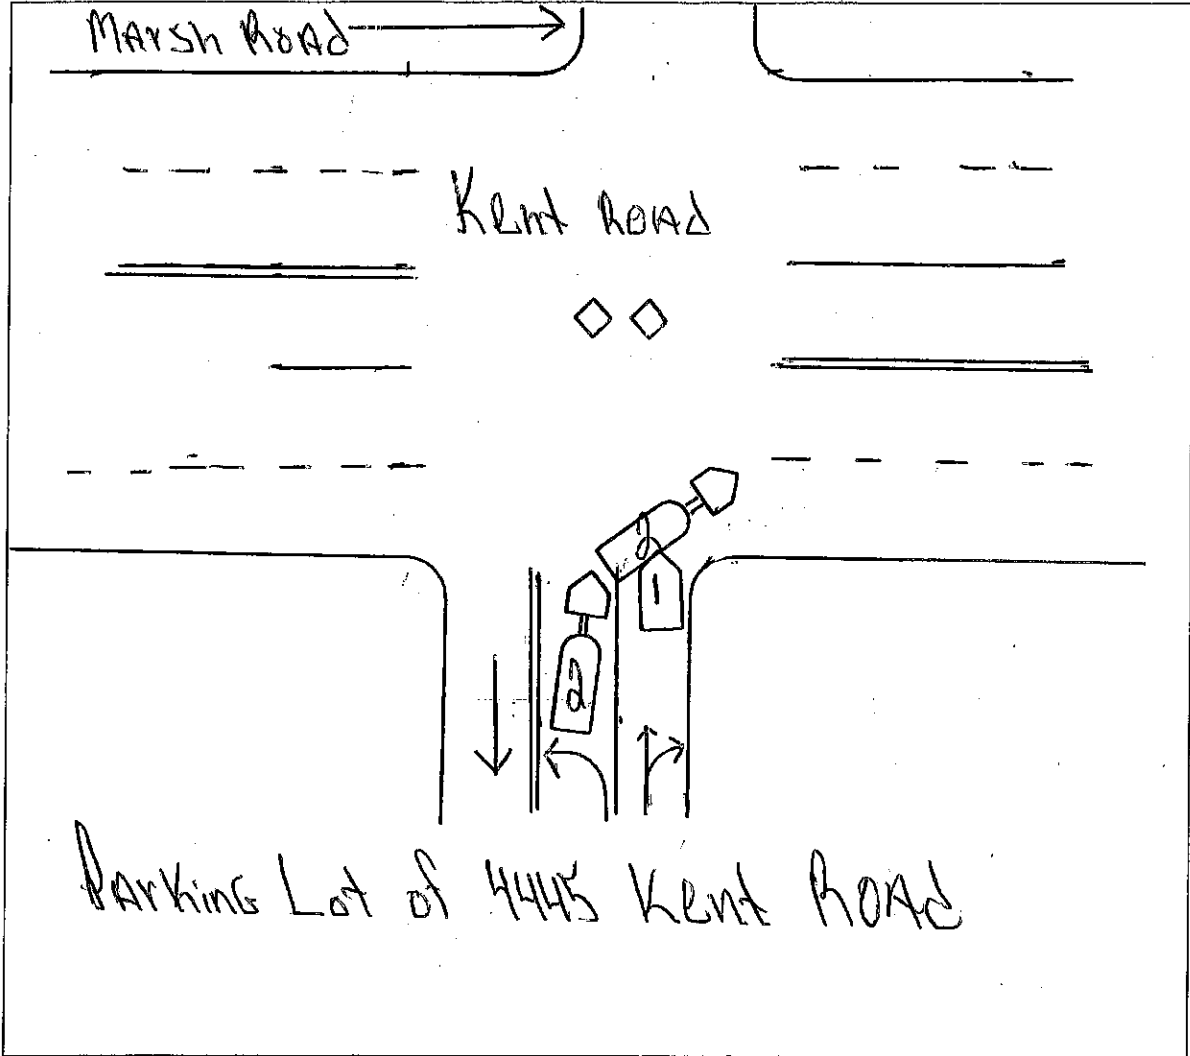 Marsh Road
Kent Road
2
1
2
Parking Lot of 4445 Kent Road